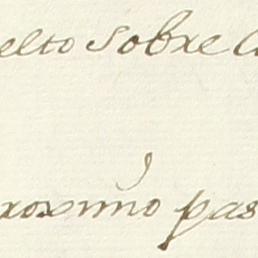 elto sobre
roximo pas